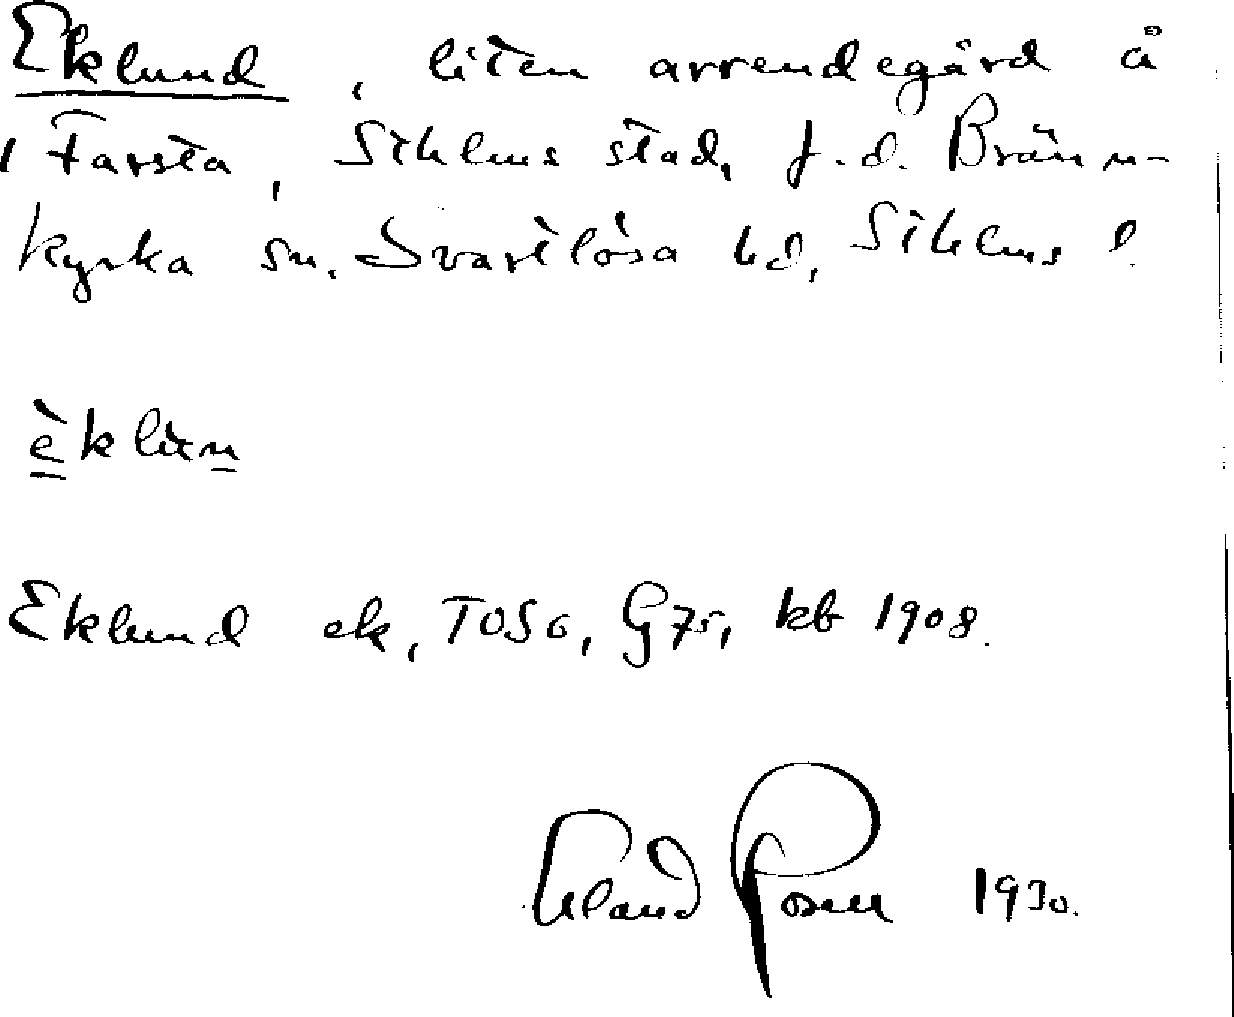 Eklund, liten arrendegård å
Farsta, Sthlms stad, f.d. Bränn-
kyrka sn. Svartlösa hd, Sthlms l.
èklu̇n
Eklund ek, TOSG, G75, kb 1908.
Erland Rosell 1930.